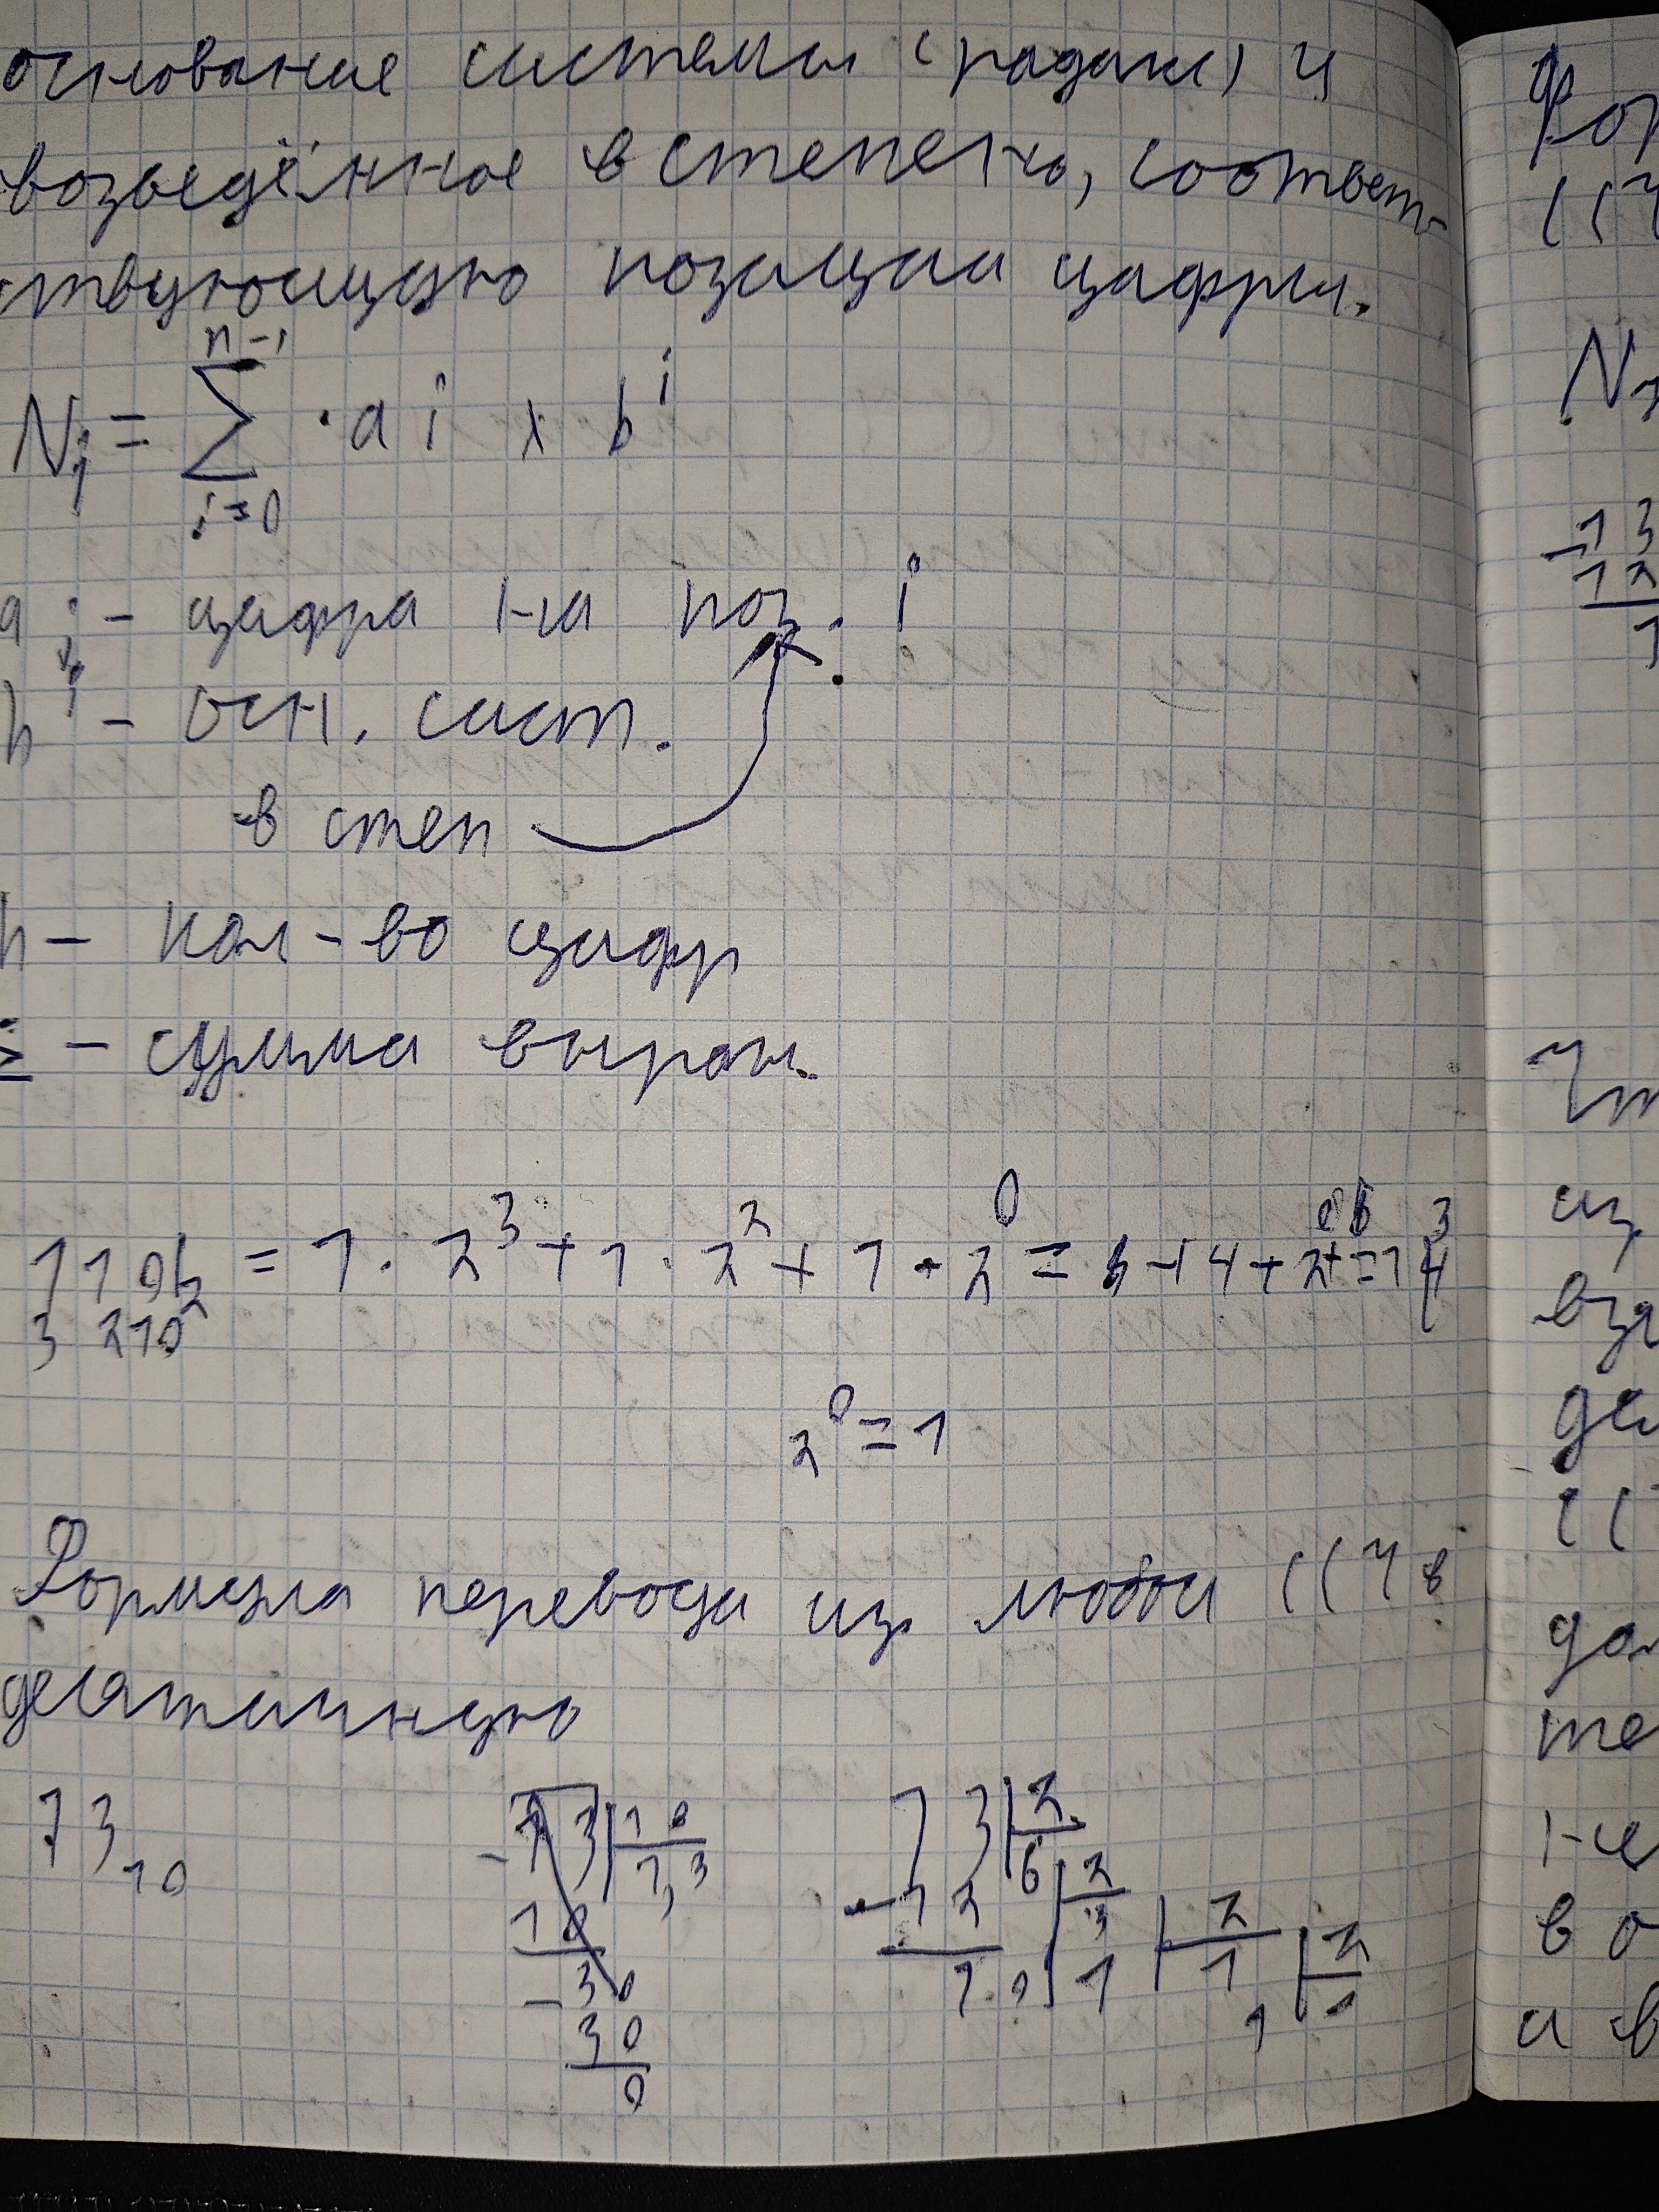 основание системы (радикс) и
возведённое в степень, соответ-
ствующую позиции цифры.
n-1
N = ∑ · a i x b^i
i=0
a i - цифра на поз. i
b^i - осн. сист.
в степ
n - кол-во цифр
∑ - сумма выраж.
1101₂ = 1 · 2³ + 1 · 2² + 1 · 2⁰ = 8 + 4 + 1 = 13
3 210
2⁰ = 1
Формула перевода из любой ССЧ в
десятичную
13₁₀
13 | 10
1,3
10
30
30
0
13 | 2
12 6 | 2
1 0 3 | 2
1 1 | 2
1 0
Фор
ССЧ
N
13
12
1
Чт
из
взя
де
СС
те
в о
и в